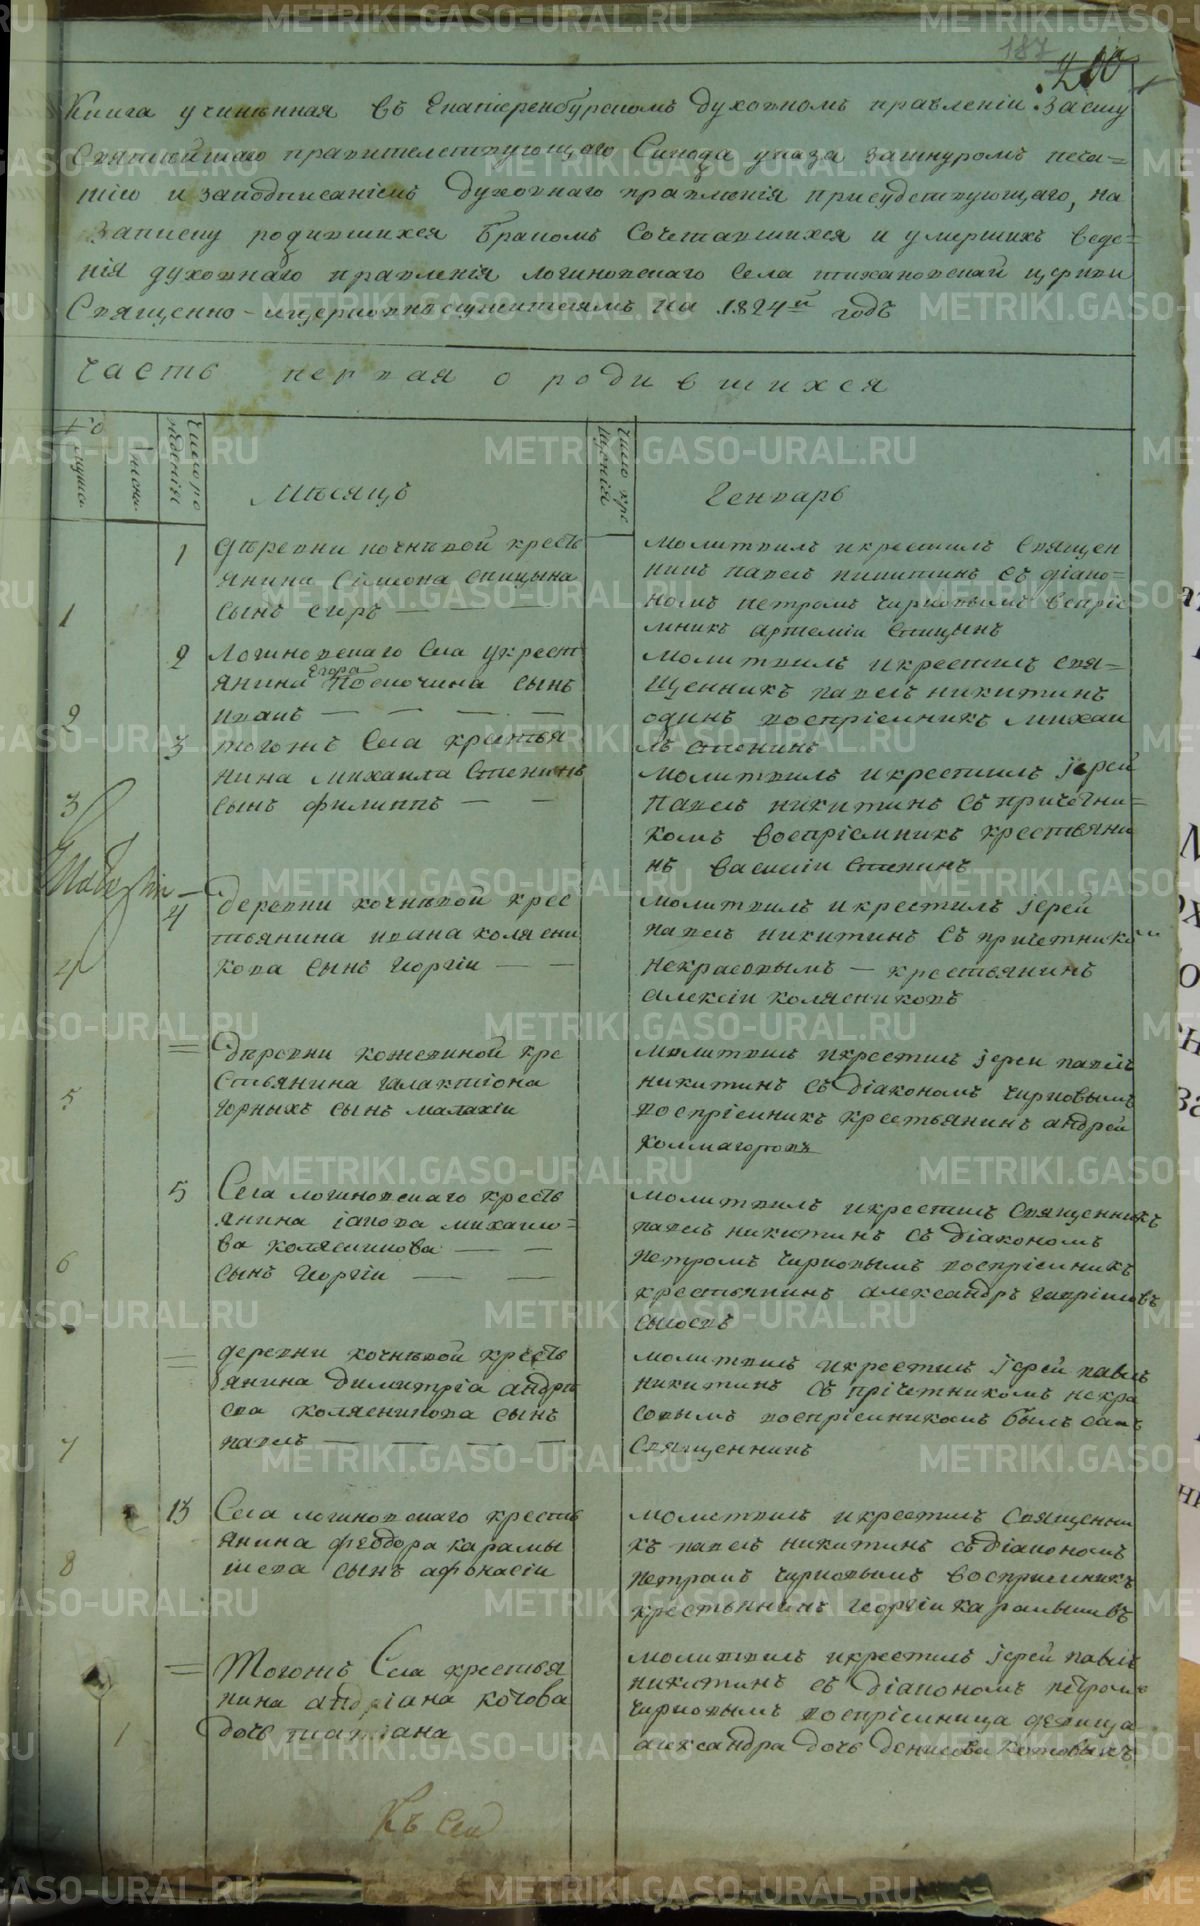 187
200
Книга учинѣнная въ Екатеренбурскомъ духовномъ правленіи засилу
Святѣйшаго правителствующаго Синода указа зашнуромъ печа=
тью и заподписаніемъ Духовнаго правленія присудствующаго, на
записку родившихся бракомъ сочетавшихся и умершихъ веде=
нія духовнаго правленія логиновскаго села тихановской церкви
Священно-церковнослужителямъ на 1824й годъ
Часть первая о родившихся
Мѣсяцъ
Число ро
жденія
Число кре
щенія
Генварь
1
1
дѣревни кочнѣвой кресть
янина Сімеона спицына
сынъ сиръ — — —
молитвилъ икрестилъ Священ
никъ павелъ никитинъ съ діако=
номъ петромъ чирковымъ воспріе
мникъ артемии спицынъ
2
2
логиновскаго Села укрест
янина Егора Поскочина сынъ
иванъ — — — —
молитвилъ икрестилъ свя=
щенникъ павелъ никитинъ
одинъ воспріемникъ михаи
лъ стенинъ
3
3
тогожъ Села крестья
нина михаила Стенинъ
сынъ филиппъ — —
молитвилъ икрестилъ іерей
павелъ никитинъ съ причетни=
комъ воспріемникъ крестьяни
нъ василіи стенинъ
4
4
деревни кочнѣвой крес
тьянина ивана колясни
кова сынъ георгіи — —
молитвилъ икрестилъ іерей
павелъ никитинъ съ причетникомъ
некрасовымъ — крестьянинъ
алексіи колясниковъ
5
=
Дѣревни кожевиной кре
стьянина галактіона
горныхъ сынъ малахіи
молитвилъ икрестилъ іереи павелъ
никитинъ съ діакономъ чирковымъ
воспріемникъ крестьянинъ андрей
колмагоровъ
6
5
Села логиновскаго кресть
янина іакова михаило=
ва колясникова — —
сынъ георгіи — —
молитвилъ икрестилъ священникъ
павелъ никитинъ съ діакономъ
петромъ чирковымъ воспріемникъ
крестьянинъ александръ гавріиловъ
сысоевъ
7
=
деревни кочнѣвой кресть
янина димитріа андре
ева колясникова сынъ
павелъ — — — —
молитвилъ икрестилъ іерей павелъ
никитинъ съ прічетникомъ некра
совымъ воспріемникомъ былъ самъ
Священникъ
8
13
Села логиновскаго кресть
янина феодора карамы
шева сынъ афонасіи
молитвилъ икрестилъ священни
къ павелъ никитинъ съ діакономъ
петромъ чирковымъ воспріемникъ
крестьянинъ георгіи карамышевъ
1
=
Тогожъ Села крестья
нина андріана котова
дочь татіана
молитвилъ икрестилъ іерей павелъ
никитинъ съ діакономъ петромъ
чирковымъ воспріемница девица
александра дочь денисова котовыхъ
Къ сей
METRIKI.GASO-URAL.RU